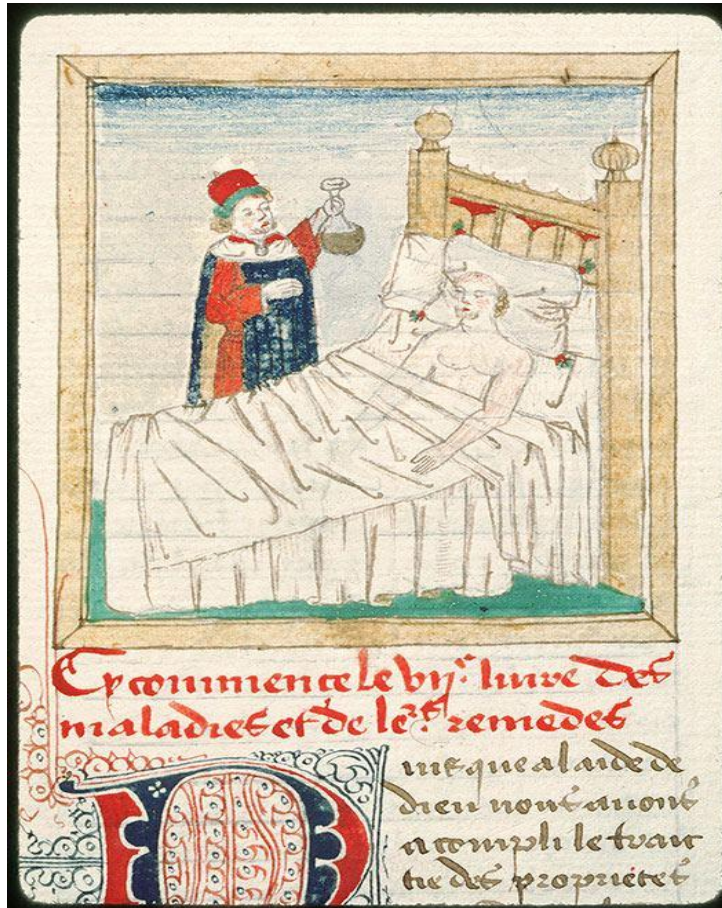 Cy commence le vije livre des
maladies et de lers remedes
Puis que a laide de
dieu nous avons
acompli le trait
tie des proprietes